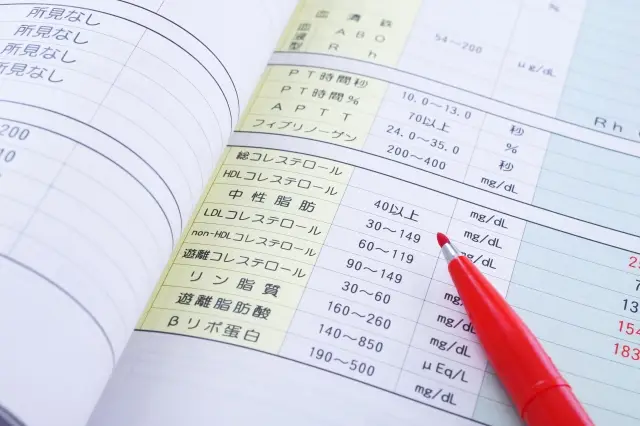 所見なし
所見なし
所見なし
所見なし
200
10
%
血清鉄 54~200 μg/dL
血液型 ABO
Rh Rh
PT時間秒 10.0~13.0 秒
PT時間% 70以上 %
APTT 24.0~35.0 秒
フィブリノーゲン 200~400 mg/dL
総コレステロール mg/dL
HDLコレステロール 40以上 mg/dL
中性脂肪 30~149 mg/dL
LDLコレステロール 60~119
non-HDLコレステロール 90~149
遊離コレステロール 30~60 mg/dL
リン脂質 160~260 mg/dL
遊離脂肪酸 140~850 μEq/L
βリポ蛋白 190~500 mg/dL
154
183